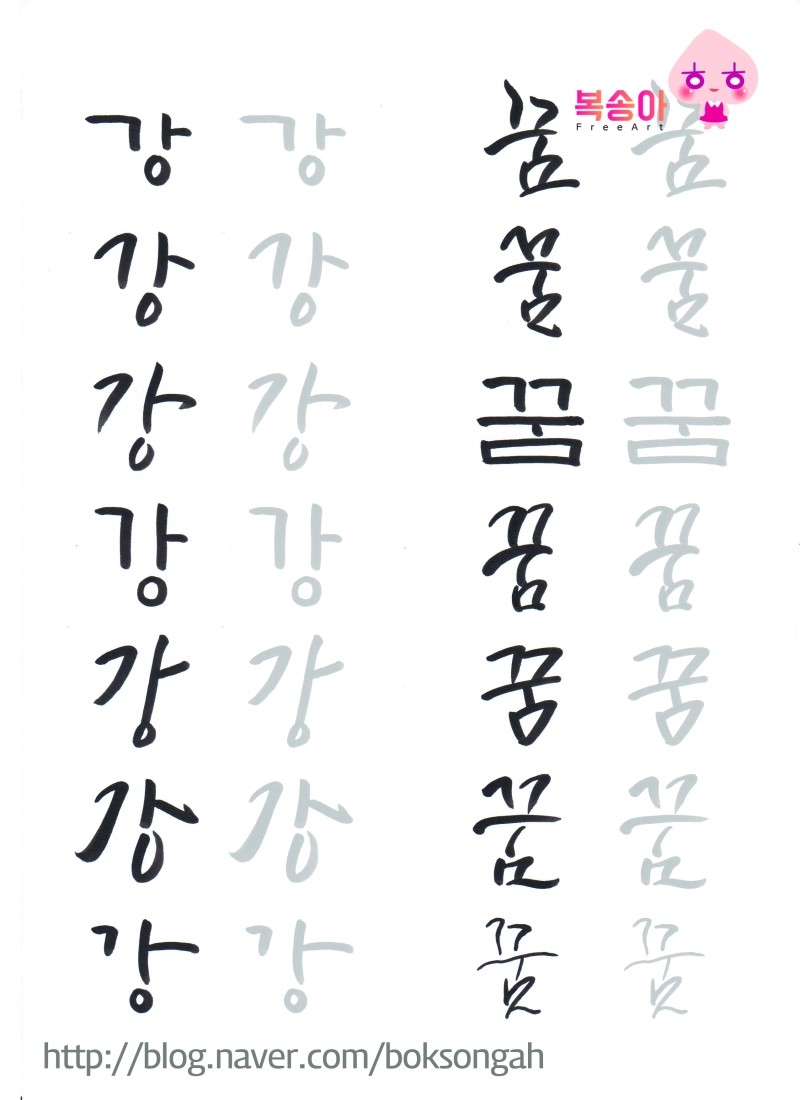 복숭아
FreeArt
ㅎ ㅎ
강 강 꿈 꿈
강 강 꿈 꿈
강 강 꿈 꿈
강 강 꿈 꿈
강 강 꿈 꿈
강 강 꿈 꿈
강 강 꿈 꿈
http://blog.naver.com/boksongah